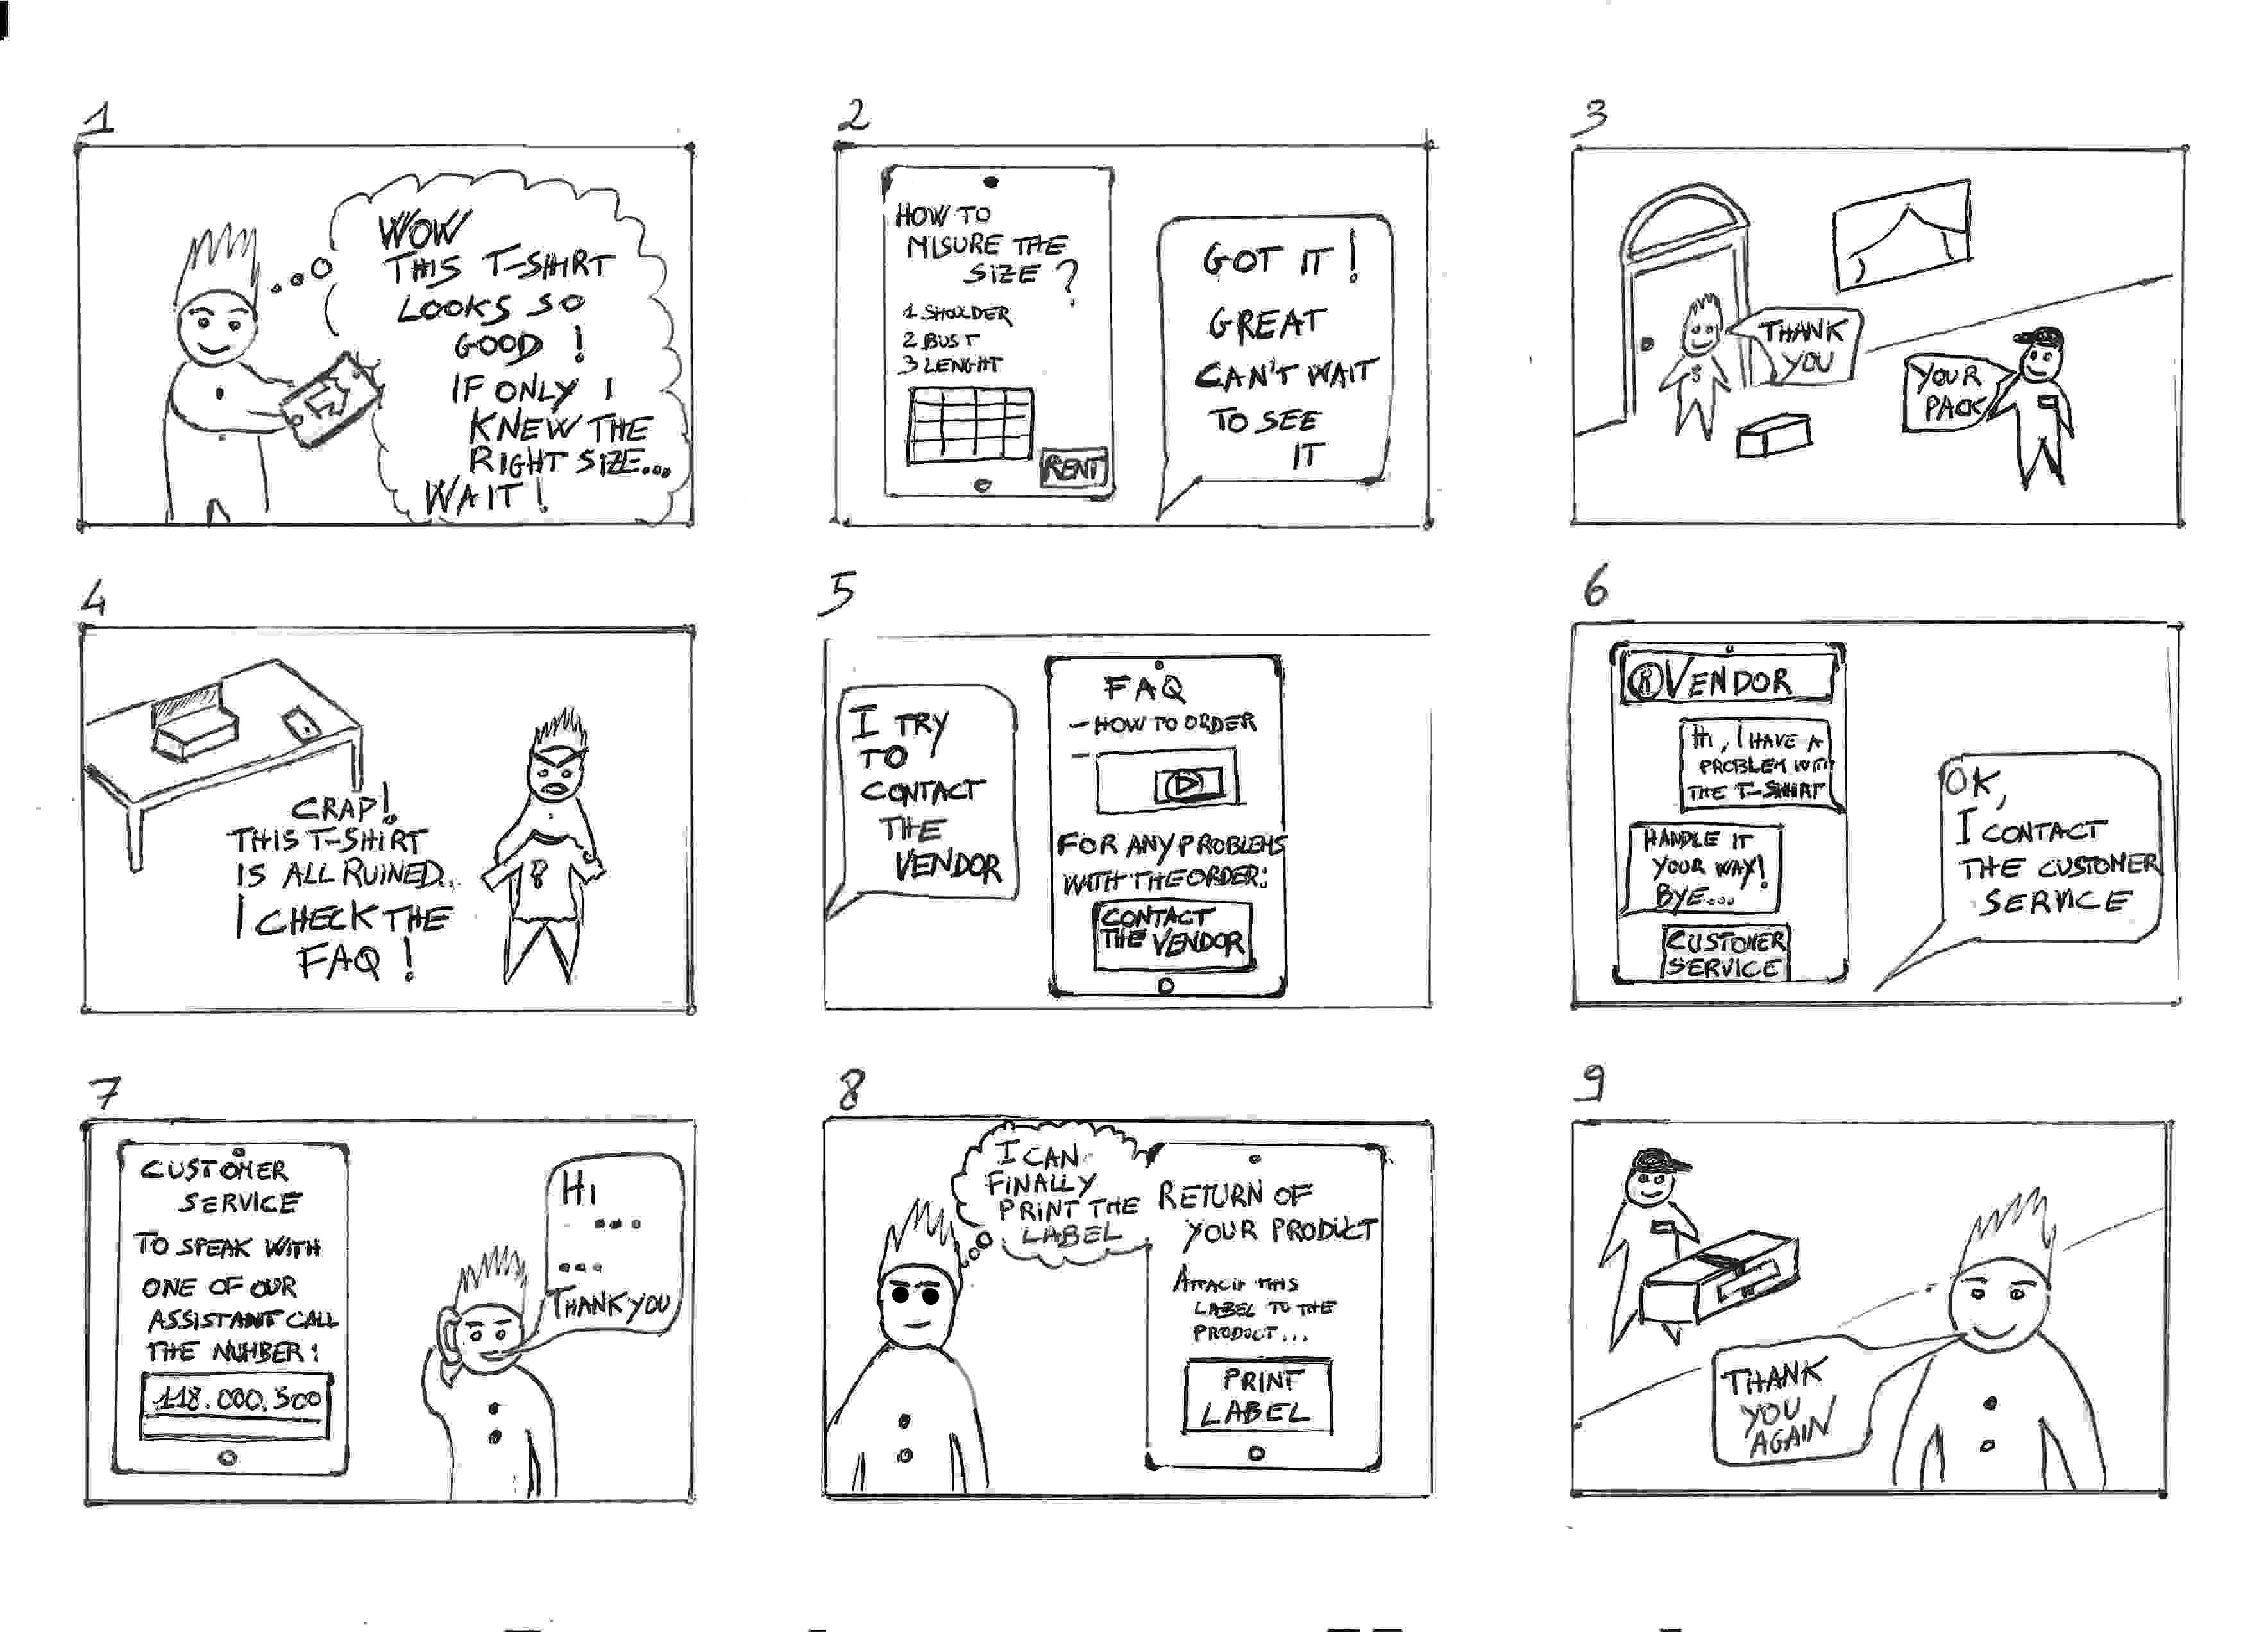 1
WOW
THIS T-SHIRT
LOOKS SO
GOOD !
IF ONLY I
KNEW THE
RIGHT SIZE...
WAIT !
2
HOW TO
MISURE THE
SIZE ?
1 SHOULDER
2 BUST
3 LENGHT
RENT
GOT IT !
GREAT
CAN'T WAIT
TO SEE
IT
3
THANK
YOU
YOUR
PACK
4
CRAP!
THIS T-SHIRT
IS ALL RUINED..
I CHECK THE
FAQ !
5
I TRY
TO
CONTACT
THE
VENDOR
FAQ
- HOW TO ORDER
-
FOR ANY PROBLEMS
WITH THE ORDER:
CONTACT
THE VENDOR
6
® VENDOR
HI, I HAVE A
PROBLEM WITH
THE T-SHIRT
HANDLE IT
YOUR WAY!
BYE....
CUSTOMER
SERVICE
OK,
I CONTACT
THE CUSTOMER
SERVICE
7
CUSTOMER
SERVICE
TO SPEAK WITH
ONE OF OUR
ASSISTANT CALL
THE NUMBER:
118.000.500
HI
...
...
THANK YOU
8
I CAN
FINALLY
PRINT THE
LABEL
RETURN OF
YOUR PRODUCT
ATTACH THIS
LABEL TO THE
PRODUCT...
PRINT
LABEL
9
THANK
YOU
AGAIN